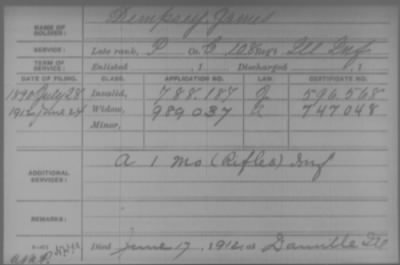 NAME OF SOLDIER: Dempsey, James
SERVICE: Late rank, P Co. C, 108 Reg't Ill Inf
TERM OF SERVICE: Enlisted , 1 Discharged , 1
DATE OF FILING. CLASS. APPLICATION NO. LAW. CERTIFICATE NO.
1890 July 28 Invalid, 788.187 596.568
1912 June 24 Widow, 989037 747048
Minor,
ADDITIONAL SERVICES: A 1 Mo (Rifles) Inf
REMARKS:
Died June 17, 1912 Danville Ill